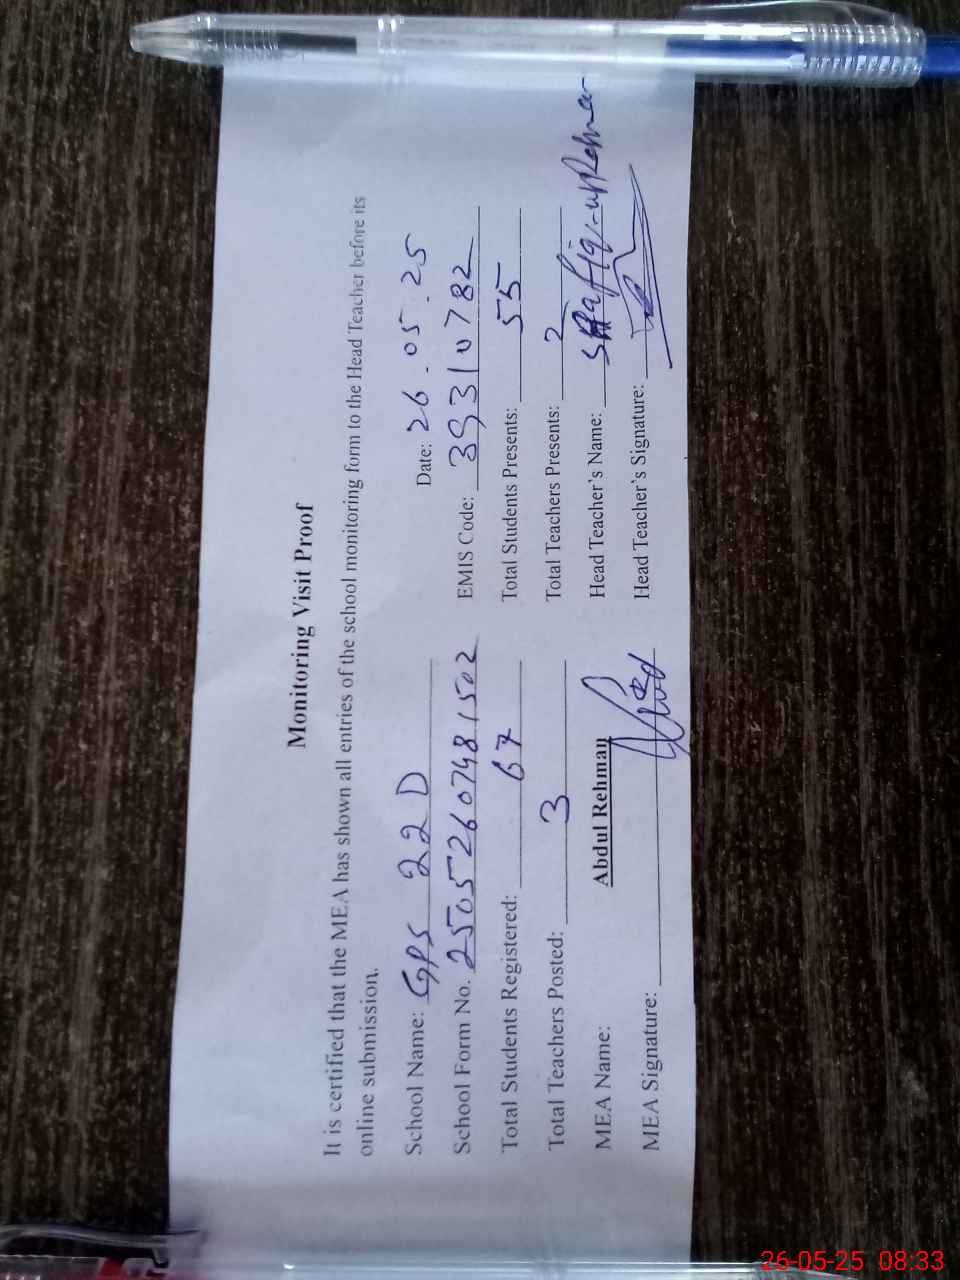 Monitoring Visit Proof
It is certified that the MEA has shown all entries of the school monitoring form to the Head Teacher before its
online submission.
School Name: GPS 22 D Date: 26.05.25
School Form No. 25052607481502 EMIS Code: 39310782
Total Students Registered: 67 Total Students Presents: 55
Total Teachers Posted: 3 Total Teachers Presents: 2
MEA Name: Abdul Rehman Head Teacher's Name: Shafiq-ur-Rehman
MEA Signature: Head Teacher's Signature:
26-05-25 08:33